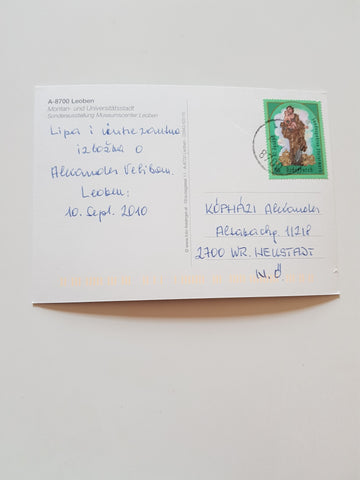 A-8700 Leoben
Montan- und Universitätsstadt
Sonderausstellung Museumscenter Leoben
Lipa i interezantna
izložba o
Alexander Velikom.
Leoben:
10. Sept. 2010
KÓPHÁZI Alexander
11/218
2700 WR. NEUSTADT
N.Ö.